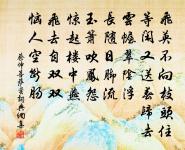 飛英不向枝頭住
等閒又送春歸去
雲帳翳陰浮
長隨日腳流
玉簫吹鳳怨
驚起樓中燕
飛去自雙雙
惱人空斷腸
蔡伸菩薩蠻詞